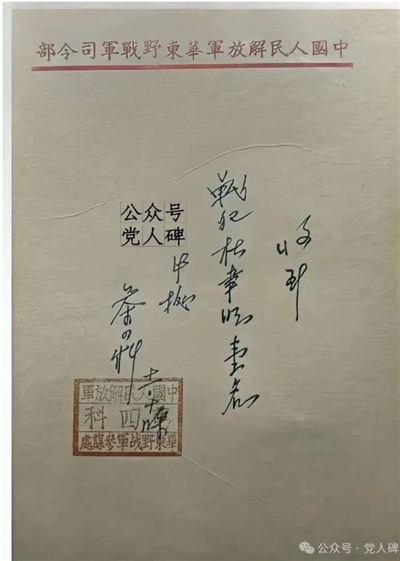 中國人民解放軍華東野戰軍司令部
收到
戰犯杜聿明壹名
此據
参四科
中國人民解放軍
四科
華東野战軍參謀處
公众号
党人碑
公众号·党人碑